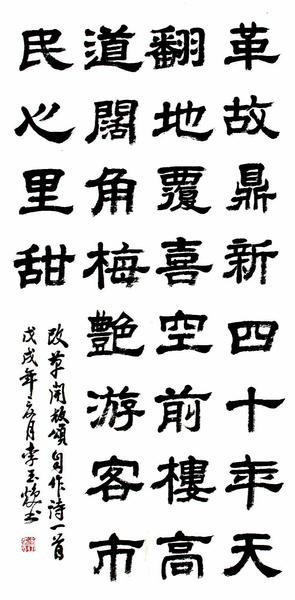 革故鼎新四十年天
翻地覆喜空前樓高
道闊角梅艷游客市
民心里甜
改革開放頌自作詩一首
戊戌年月李玉书